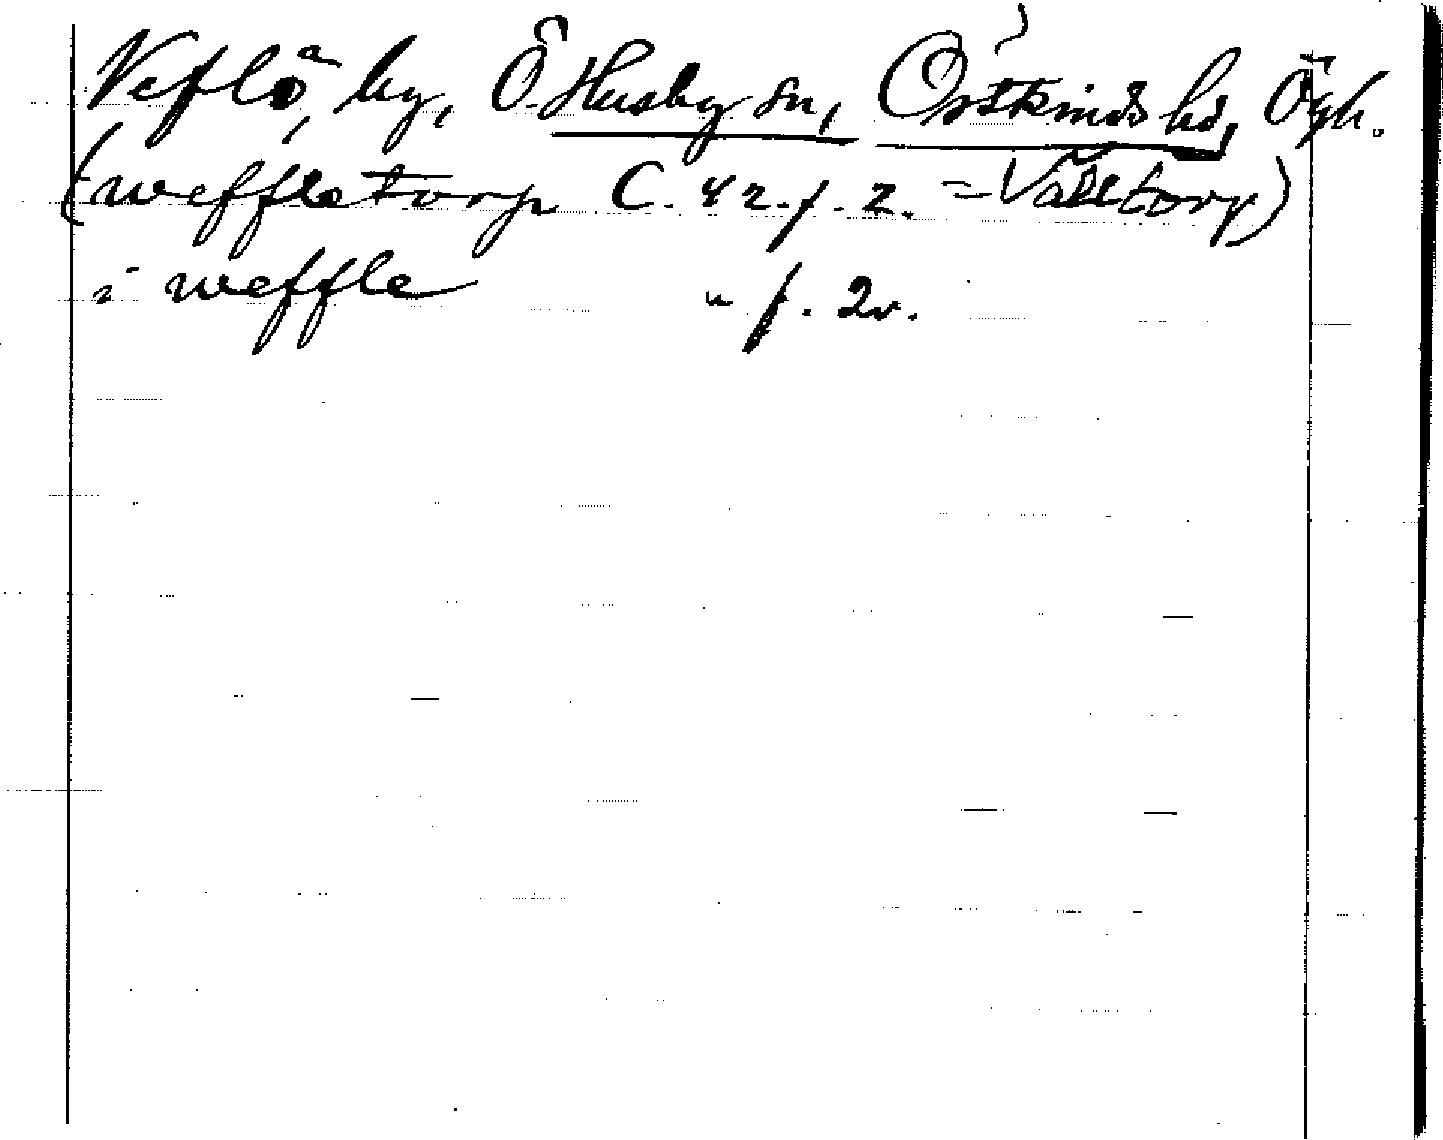 Veflö, by, Ö. Husby sn, Östkinds hd, Ögh.
(weffletorp C. 42. f. 2. = Välltorp)
i weffle " f. 2v.